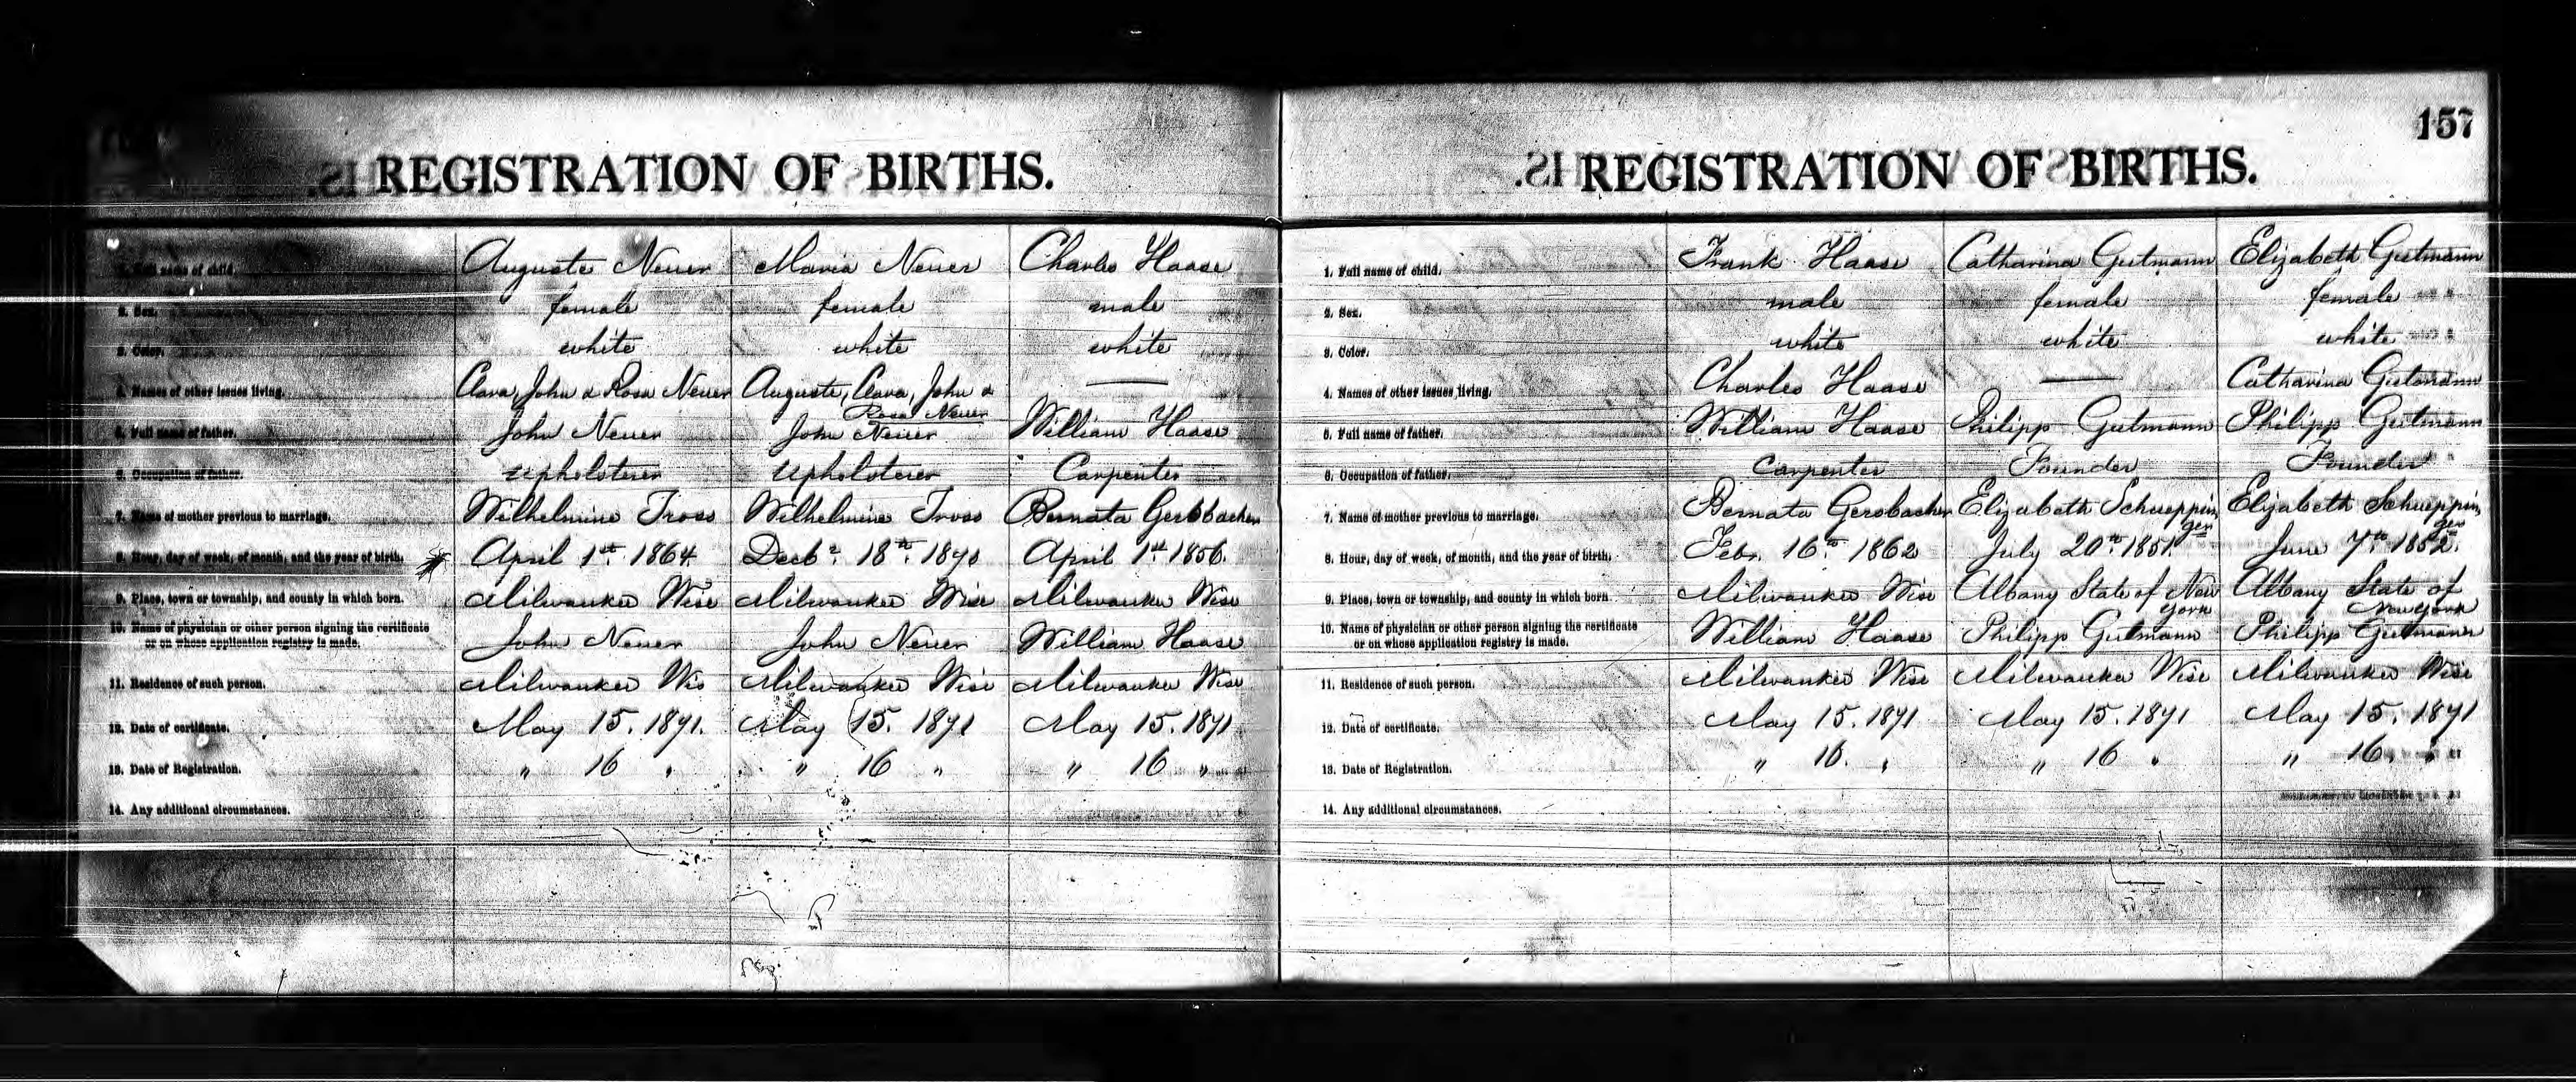 157
REGISTRATION OF BIRTHS.
1. Full name of child. Auguste Neuer Maria Neuer Charles Haase
2. Sex. female female male
3. Color. white white white
4. Names of other issues living. Clara, John & Rosa Neuer Auguste, Clara, John & Rosa Neuer —
5. Full name of father. John Neuer John Neuer William Haase
6. Occupation of father. Upholsterer Upholsterer Carpenter
7. Name of mother previous to marriage. Wilhelmine Tross Wilhelmine Tross Bernata Gersbacher
8. Hour, day of week, of month, and the year of birth. April 1st 1864. Decbr 18th 1870 April 1st 1856.
9. Place, town or township, and county in which born. Milwaukee Wisc Milwaukee Wisc Milwaukee Wisc
10. Name of physician or other person signing the certificate
or on whose application registry is made. John Neuer John Neuer William Haase
11. Residence of such person. Milwaukee Wis Milwaukee Wisc Milwaukee Wisc
12. Date of certificate. May 15. 1871. May 15. 1871 May 15. 1871
13. Date of Registration. " 16 " " 16 " " 16 "
14. Any additional circumstances.
REGISTRATION OF BIRTHS.
1. Full name of child. Frank Haase Catharina Gutmann Elizabeth Gutmann
2. Sex. male female female
3. Color. white white white
4. Names of other issues living. Charles Haase — Catharina Gutmann
5. Full name of father. William Haase Philipp Gutmann Philipp Gutmann
6. Occupation of father. Carpenter Founder Founder
7. Name of mother previous to marriage. Bernata Gersbacher Elizabeth Schueppingen Elizabeth Schueppingen
8. Hour, day of week, of month, and the year of birth. Febr. 16th 1862 July 20th 1851. June 7th 1852.
9. Place, town or township, and county in which born. Milwaukee Wisc Albany State of New York Albany State of New York
10. Name of physician or other person signing the certificate
or on whose application registry is made. William Haase Philipp Gutmann Philipp Gutmann
11. Residence of such person. Milwaukee Wisc Milwaukee Wisc Milwaukee Wisc
12. Date of certificate. May 15. 1871 May 15. 1871 May 15. 1871
13. Date of Registration. " 16. " " 16 " " 16. "
14. Any additional circumstances.